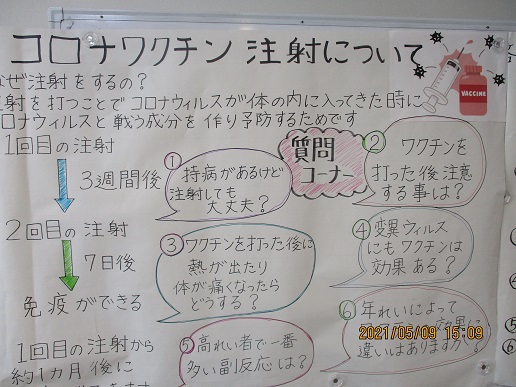 コロナワクチン注射について
VACCINE
なぜ注射をするの？
注射を打つことでコロナウィルスが体の内に入ってきた時に
コロナウィルスと戦う成分を作り予防するためです
1回目の注射
3週間後
2回目の注射
7日後
免疫ができる
1回目の注射から
約1カ月後に
質問
コーナー
①
持病があるけど
注射しても
大丈夫？
②
ワクチンを
打った後注意
する事は？
③
ワクチンを打った後に
熱が出たり
体が痛くなったら
どうする？
④
変異ウィルス
にもワクチンは
効果ある？
⑤
高れい者で一番
多い副反応は？
⑥
年れいによって
効果に
違いはありますか？
2021/05/09 15:09